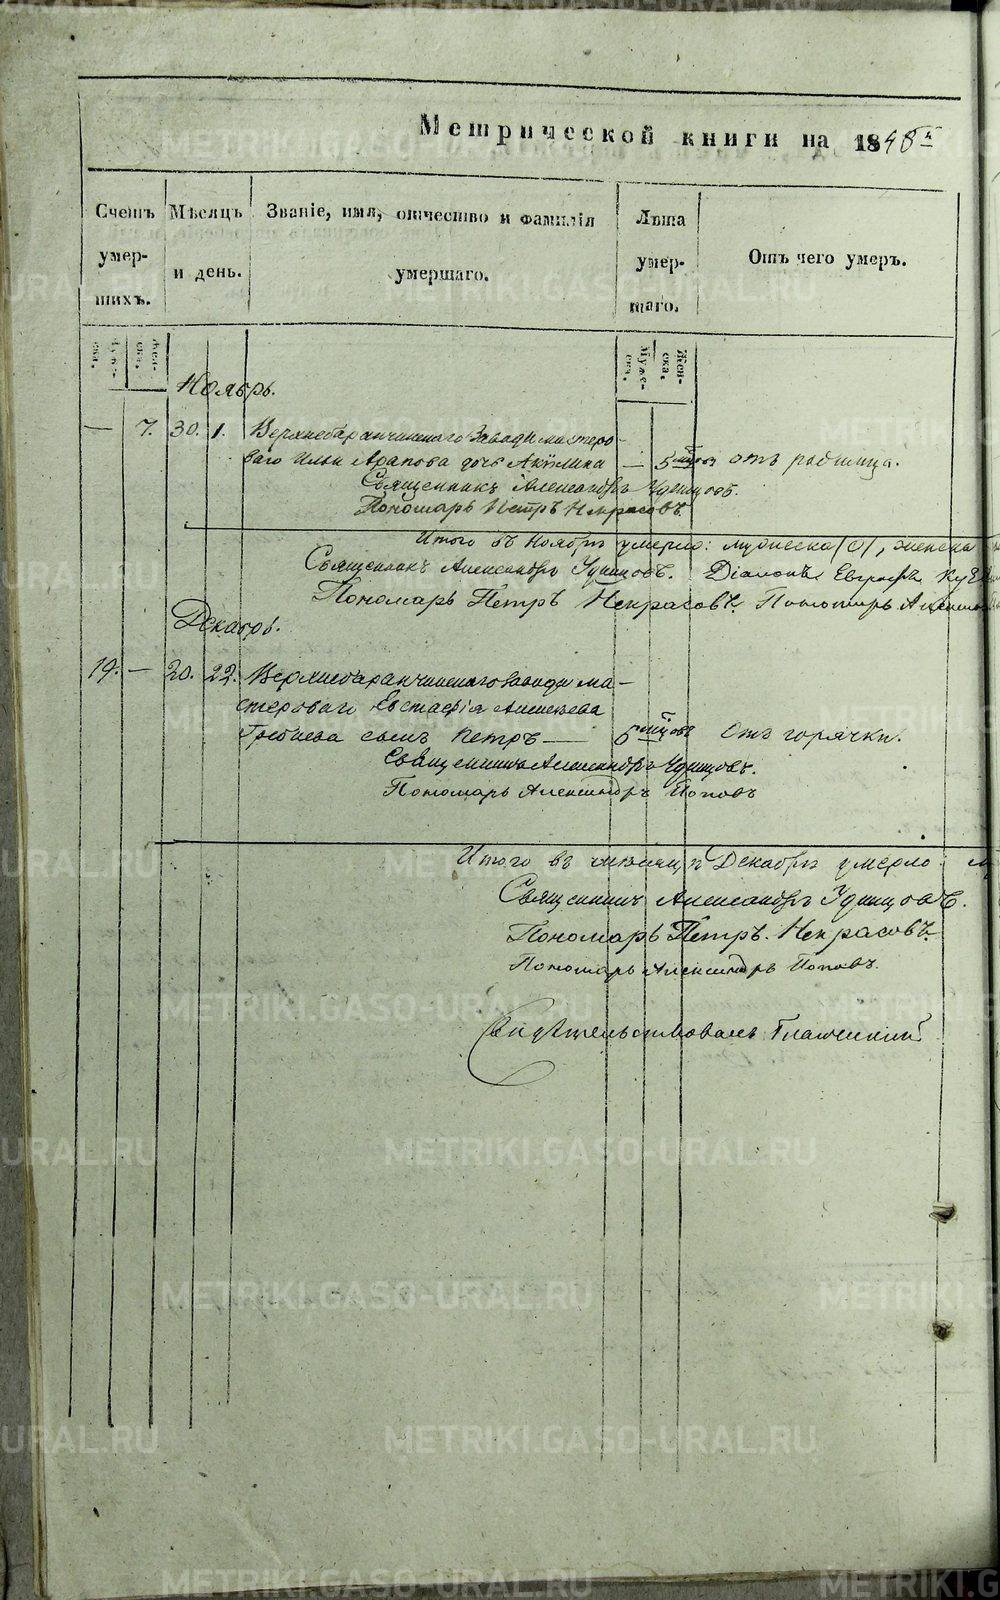 Метрической книги на 1848й
Счетъ умер- шихъ.
Мѣсяцъ и день.
Званіе, имя, отчество и фамилія умершаго.
Лѣта умер- шаго.
Отъ чего умеръ.
Муже- ска. Жен- ска.
Муже- ска. Жен- ска.
Ноябрь.
— 7. 30. 1. Верхнебаранчинскаго Завода мастеро-
ваго Ильи Арапова дочь Акилина — 5 отъ родимца.
Священникъ Александръ Удинцовъ.
Пономарь Петръ Некрасовъ.
Итого въ Ноябрѣ умерло: мужеска (0), женска
Священникъ Александръ Удинцовъ. Діаконъ Евграфъ
Пономарь Петръ Некрасовъ. Пономарь
Декабрь.
19. — 20. 22. Верхнебаранчинскаго завода ма-
стероваго Евстафія Алексеева
сынъ Петръ — 5 Отъ горячки.
Священникъ Александръ Удинцовъ.
Пономарь Александръ Поповъ
Итого въ Декабрѣ умерло:
Священникъ Александръ Удинцовъ.
Пономарь Петръ Некрасовъ.
Пономарь Александръ Поповъ.
Свидѣтельствовалъ
METRIKI.GASO-URAL.RU